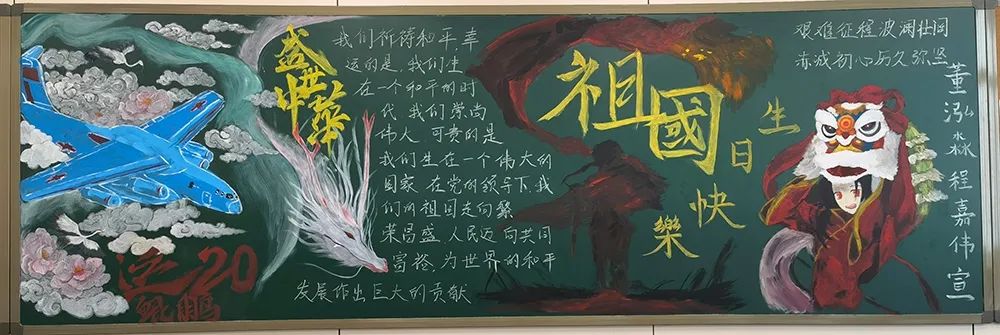 运20
鲲鹏
盛世
中华
我们祈祷和平,幸
运的是,我们生
在一个和平的时
代,我们崇尚
伟人,可贵的是
我们生在一个伟大的
国家,在党的领导下,我
们的祖国走向繁
荣昌盛,人民迈向共同
富裕,为世界的和平
发展作出巨大的贡献
祖國
生日快樂
艰难征程波澜壮阔
赤诚初心历久弥坚
董泓淼 程嘉伟 宣